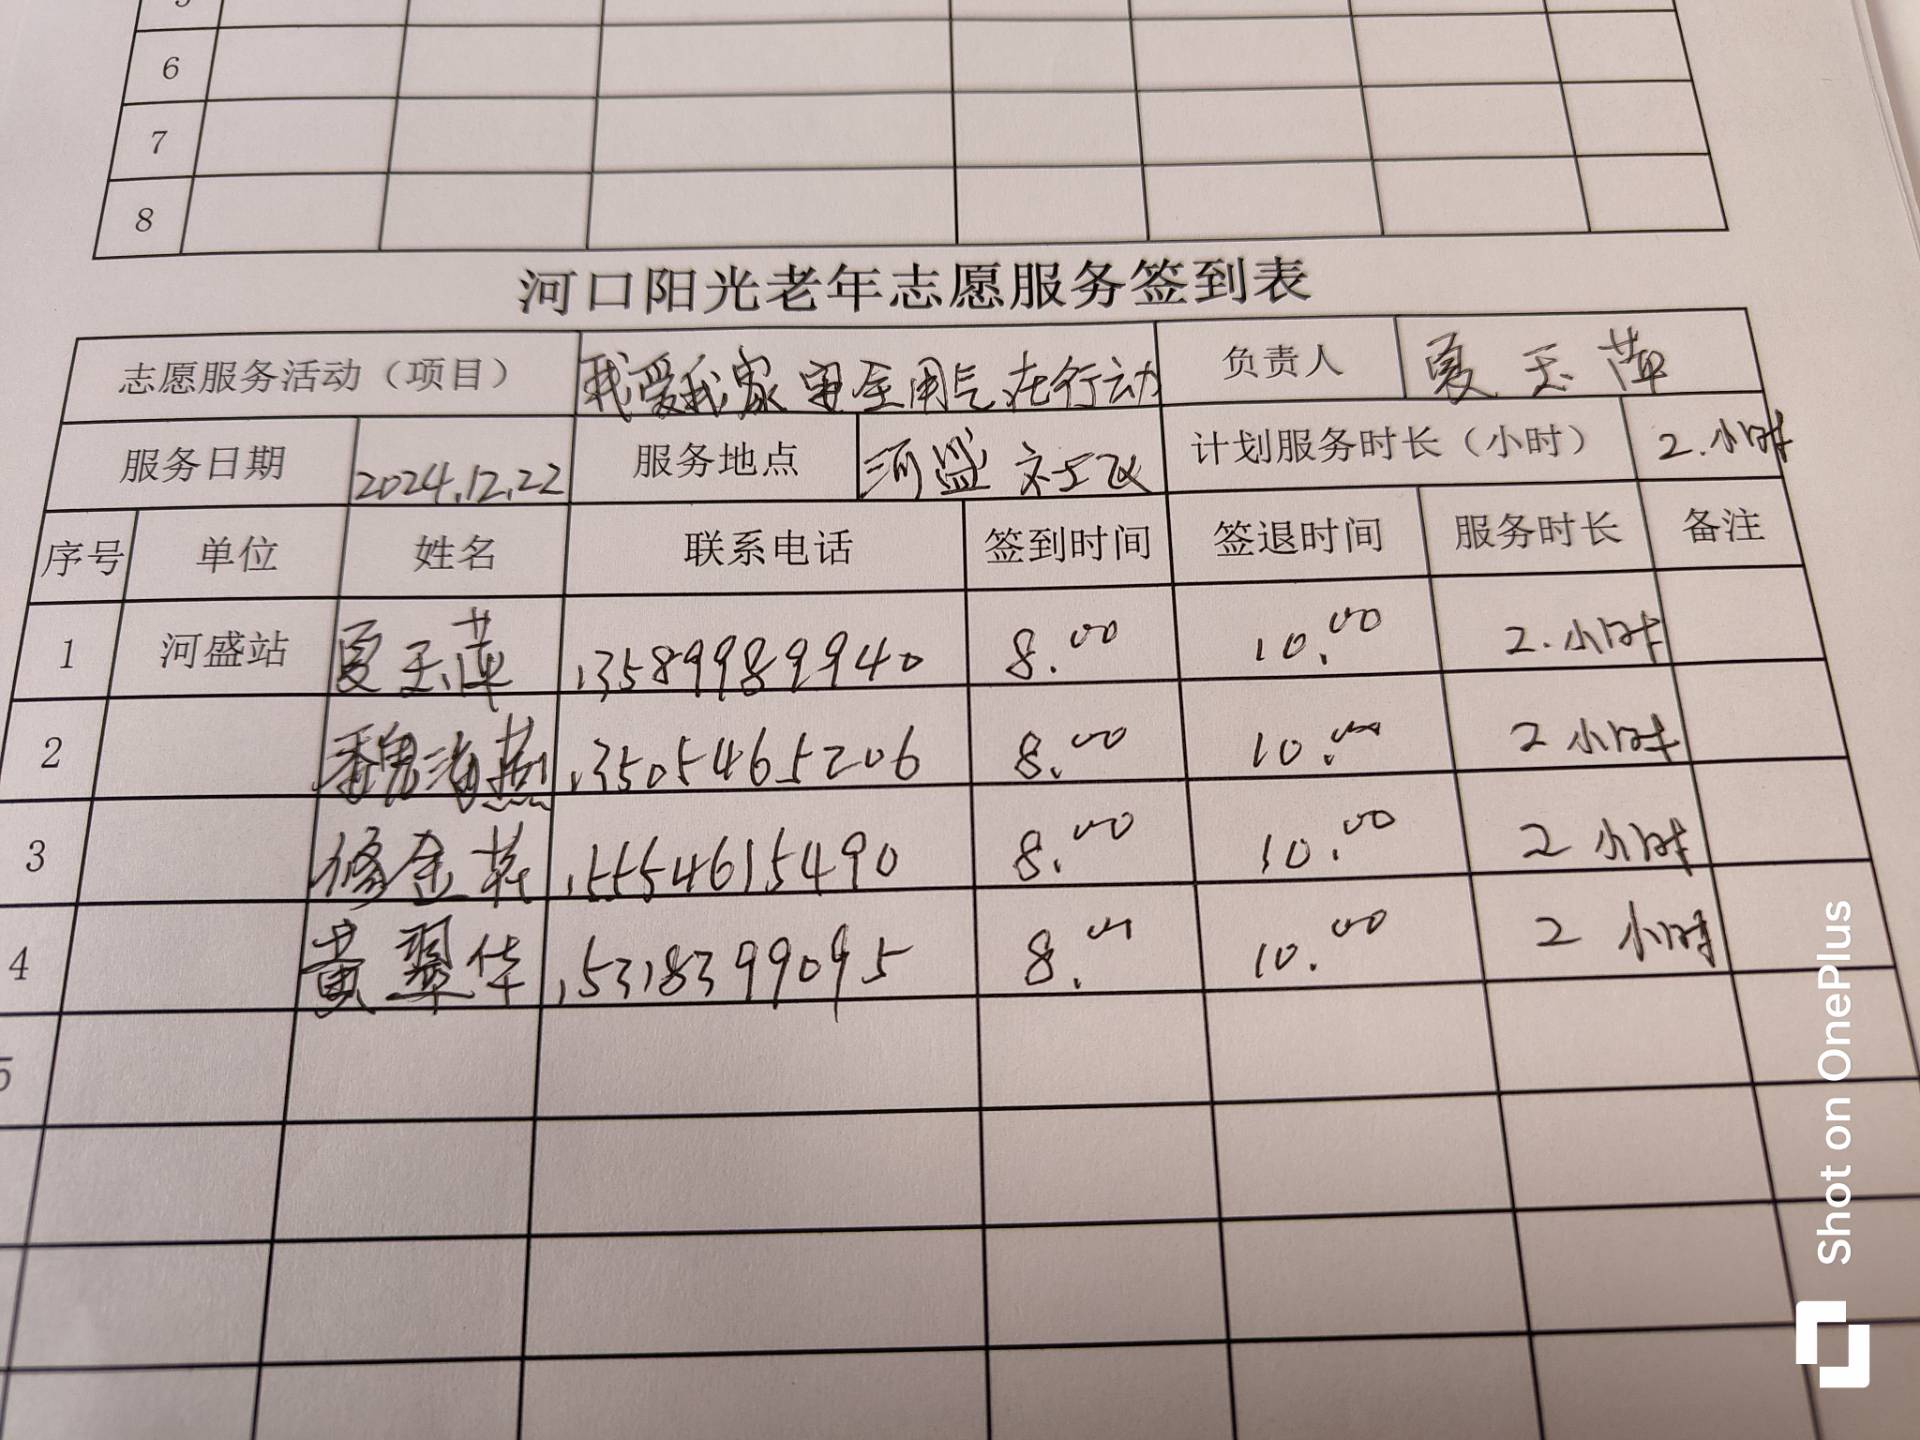 6
7
8
河口阳光老年志愿服务签到表
志愿服务活动（项目） 我爱我家 安全用气在行动 负责人 夏玉萍
服务日期 2024.12.22 服务地点 河盛社区 计划服务时长（小时） 2.小时
序号 单位 姓名 联系电话 签到时间 签退时间 服务时长 备注
1 河盛站 夏玉萍 13589989940 8.00 10.00 2.小时
2 魏海燕 13505465206 8.00 10.00 2小时
3 修金花 15554615490 8.00 10.00 2小时
4 黄翠华 15318399095 8.00 10.00 2小时
5
Shot on OnePlus